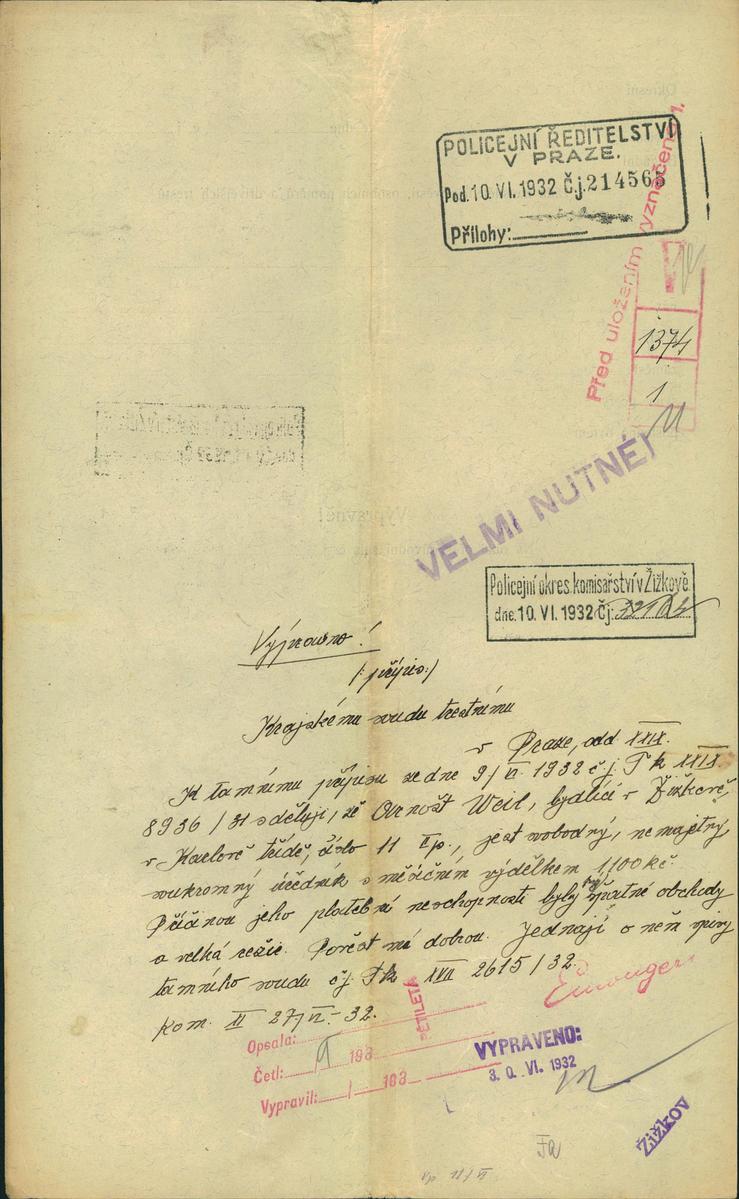 POLICEJNÍ ŘEDITELSTVÍ
V PRAZE.
Pod. 10. VI. 1932 Č.j. 214565
Přílohy:
Před uložením vyznačeno 1.
1374
1
VELMI NUTNÉ!
Policejní okres. komisařství v Žižkově
dne. 10. VI. 1932 Čj.
Výpravno!
/: přípis :/
Krajskému soudu trestnímu
v Praze, odd XXIX.
K tamnímu přípisu ze dne 9/VI. 1932 č j. Tk XXIX.
8936 / 31 sděluji, že Arnošt Weil, bydlící v Žižkově,
v Karlově třídě, číslo 11 I p., jest svobodný, nemajetný,
soukromný úředník s měsíčním výdělkem 1,100 kč.
Příčinou jeho platební neschopnosti byly špatné obchody
a velká režie. Pověst má dobrou. Jednají o něm spisy
tamního soudu čj. Tk XVII 2615 / 32.
kom. II 27/VI.-32.
PĚTILETÁ
Opsala:
Četl: 193
Vypravil: 193
VYPRAVENO:
30. VI. 1932
Žižkov